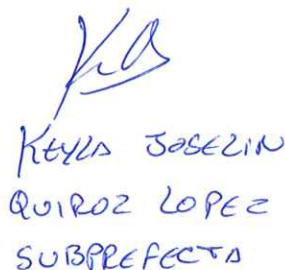 KEYLA JOSELIN
QUIROZ LOPEZ
SUBPREFECTA